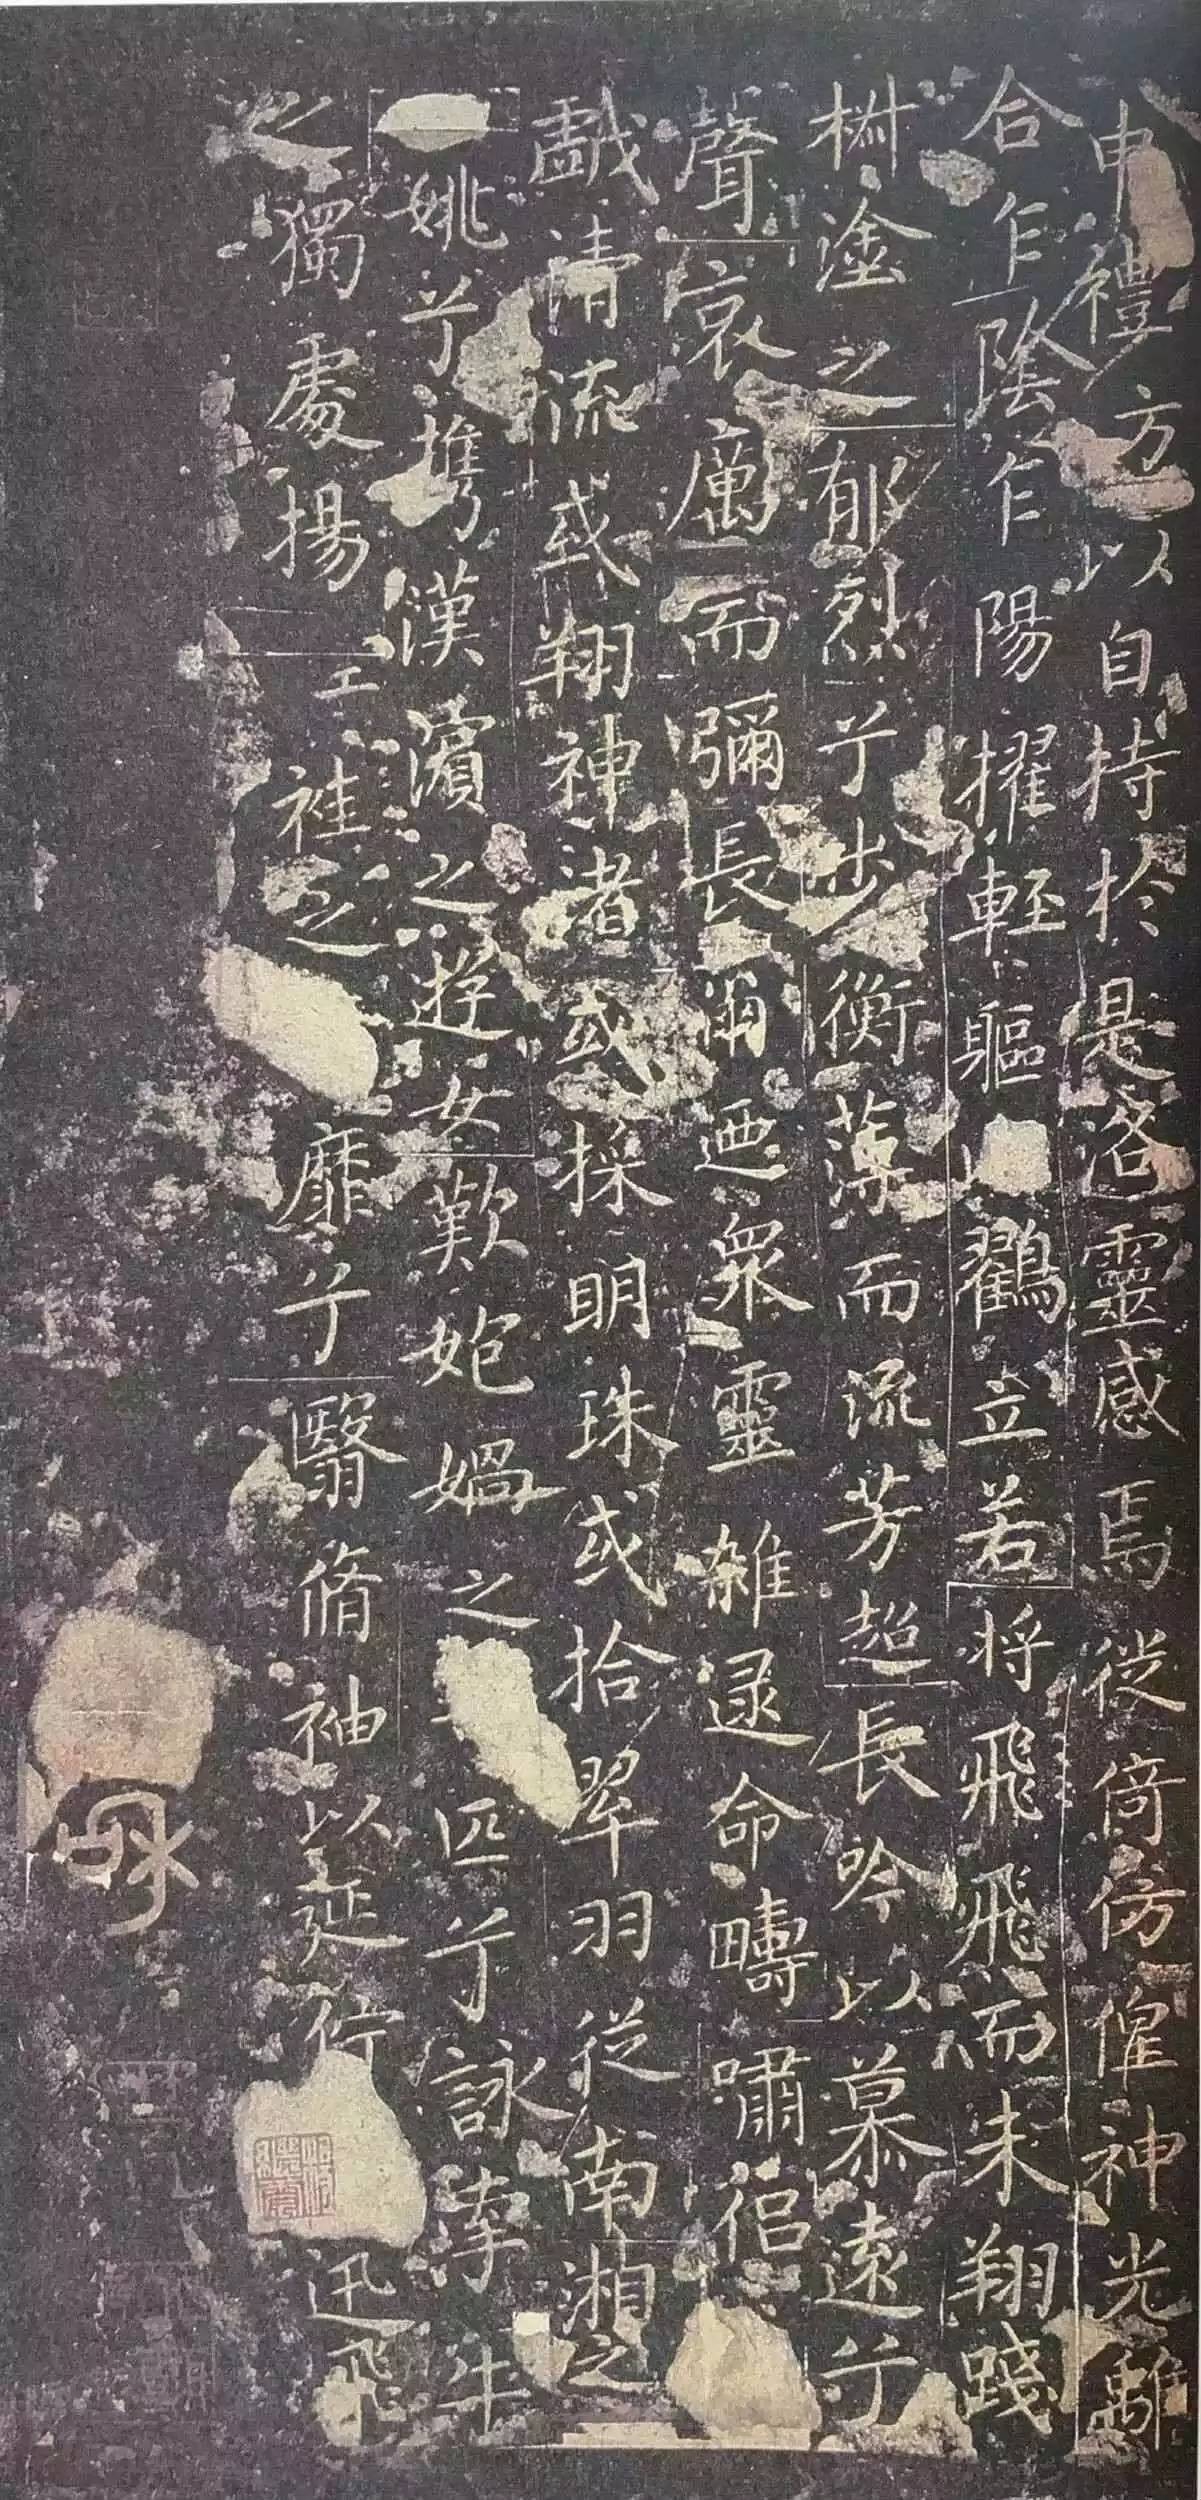 申禮方以自持於是洛靈感焉從倚仿偟神光離
合乍陰乍陽擢輕軀以鶴立若將飛飛而未翔踐
椒塗之郁烈兮步衡薄而流芳超長吟以慕遠兮
聲哀厲而彌長爾迺衆靈雜逯命疇嘯侣
戲清流或翔神渚或採明珠或拾翠羽從南湘之
二姚兮攜漢濱之遊女歎妃媧之匹兮詠牽牛
之獨處揚之袿之靡兮翳脩袖以延佇迅飛